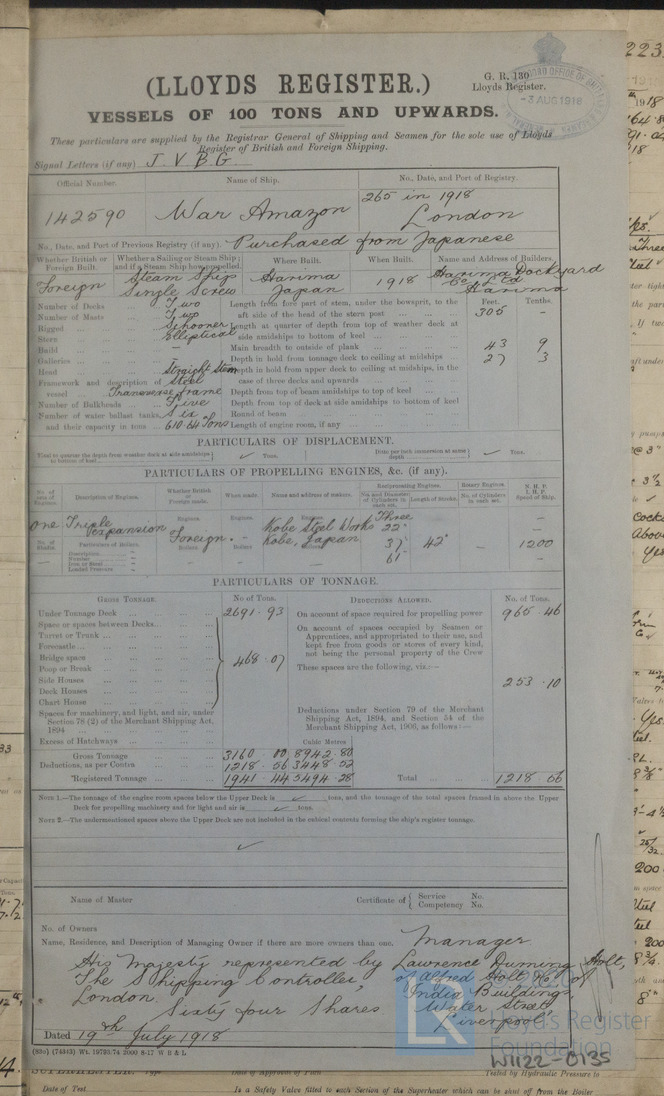 (LLOYDS REGISTER.)
G. R. 130
Lloyds Register.
-3 AUG 1918
VESSELS OF 100 TONS AND UPWARDS.
These particulars are supplied by the Registrar General of Shipping and Seamen for the sole use of Lloyds
Register of British and Foreign Shipping.
Signal Letters (if any) J. V. B. G.
Official Number. Name of Ship. No., Date, and Port of Registry.
142590 War Amazon 265 in 1918
London
No., Date, and Port of Previous Registry (if any). Purchased from Japanese
Whether British or Foreign Built. Whether a Sailing or Steam Ship; and if a Steam Ship how propelled. Where Built. When Built. Name and Address of Builders.
Foreign Steam Ship Single Screw Harima Japan 1918 Harima Dockyard Co Ltd Harima
Number of Decks Two Length from fore part of stem, under the bowsprit, to the Feet. Tenths.
Number of Masts Two aft side of the head of the stern post 305 -
Rigged Schooner Length at quarter of depth from top of weather deck at
Stern Elliptical side amidships to bottom of keel
Build - Main breadth to outside of plank 43 9
Galleries - Depth in hold from tonnage deck to ceiling at midships 27 3
Head Straight Stem Depth in hold from upper deck to ceiling at midships, in the
Framework and description of Steel case of three decks and upwards
vessel Transverse frame Depth from top of beam amidships to top of keel
Number of Bulkheads Five Depth from top of deck at side amidships to bottom of keel
Number of water ballast tanks, Six Round of beam
and their capacity in tons 610.64 Tons Length of engine room, if any
PARTICULARS OF DISPLACEMENT.
Total to quarter the depth from weather deck at side amidships to bottom of keel ✓ Tons. Ditto per inch immersion at same depth ✓ Tons.
PARTICULARS OF PROPELLING ENGINES, &c. (if any).
No. of sets of Engines. Description of Engines. Whether British or Foreign made. When made. Name and address of makers. Reciprocating Engines. Rotary Engines. N. H. P.
No. and Diameter of Cylinders in each set. Length of Stroke. No. of Cylinders in each set. I. H. P.
Speed of Ship.
One Triple Expansion Engines. Foreign Engines. - Engines. Kobe Steel Works Kobe, Japan Three 22" 37" 61" 42" - - 1200 -
No. of Shafts. Particulars of Boilers. Boilers Boilers Boilers
Description
Number
Iron or Steel
Loaded Pressure
PARTICULARS OF TONNAGE.
GROSS TONNAGE. No of Tons. DEDUCTIONS ALLOWED. No. of Tons.
Under Tonnage Deck 2691.93 On account of space required for propelling power 965.46
Space or spaces between Decks On account of spaces occupied by Seamen or
Turret or Trunk Apprentices, and appropriated to their use, and
Forecastle kept free from goods or stores of every kind,
Bridge space 468.07 not being the personal property of the Crew
Poop or Break These spaces are the following, viz.:—
Side Houses 253.10
Deck Houses
Chart House
Spaces for machinery, and light, and air, under Deductions under Section 79 of the Merchant
Section 78 (2) of the Merchant Shipping Act, Shipping Act, 1894, and Section 54 of the
1894 Merchant Shipping Act, 1906, as follows:—
Excess of Hatchways Cubic Metres
Gross Tonnage 3160.00 8942.80
Deductions, as per Contra 1218.56 3448.52
Registered Tonnage 1941.44 5494.28 Total 1218.56
NOTE 1.—The tonnage of the engine room spaces below the Upper Deck is ✓ tons, and the tonnage of the total spaces framed in above the Upper
Deck for propelling machinery and for light and air is ✓ tons.
NOTE 2.—The undermentioned spaces above the Upper Deck are not included in the cubical contents forming the ship's register tonnage.
✓
Name of Master Certificate of { Service No.
Competency No.
No. of Owners
Name, Residence, and Description of Managing Owner if there are more owners than one. Manager
His Majesty represented by Lawrence Durning Holt,
The Shipping Controller, of Alfred Holt & Co of
London India Buildings,
Sixty four Shares Water Street,
Liverpool
Dated 19th July 1918
(830) (74343) Wt. 19793/74 2000 8-17 W B & L
Lloyd's Register
Foundation
W1122-0135
Date of Test
Tested by Hydraulic Pressure to
Is a Safety Valve fitted to each Section of the Superheater which can be shut off from the Boiler